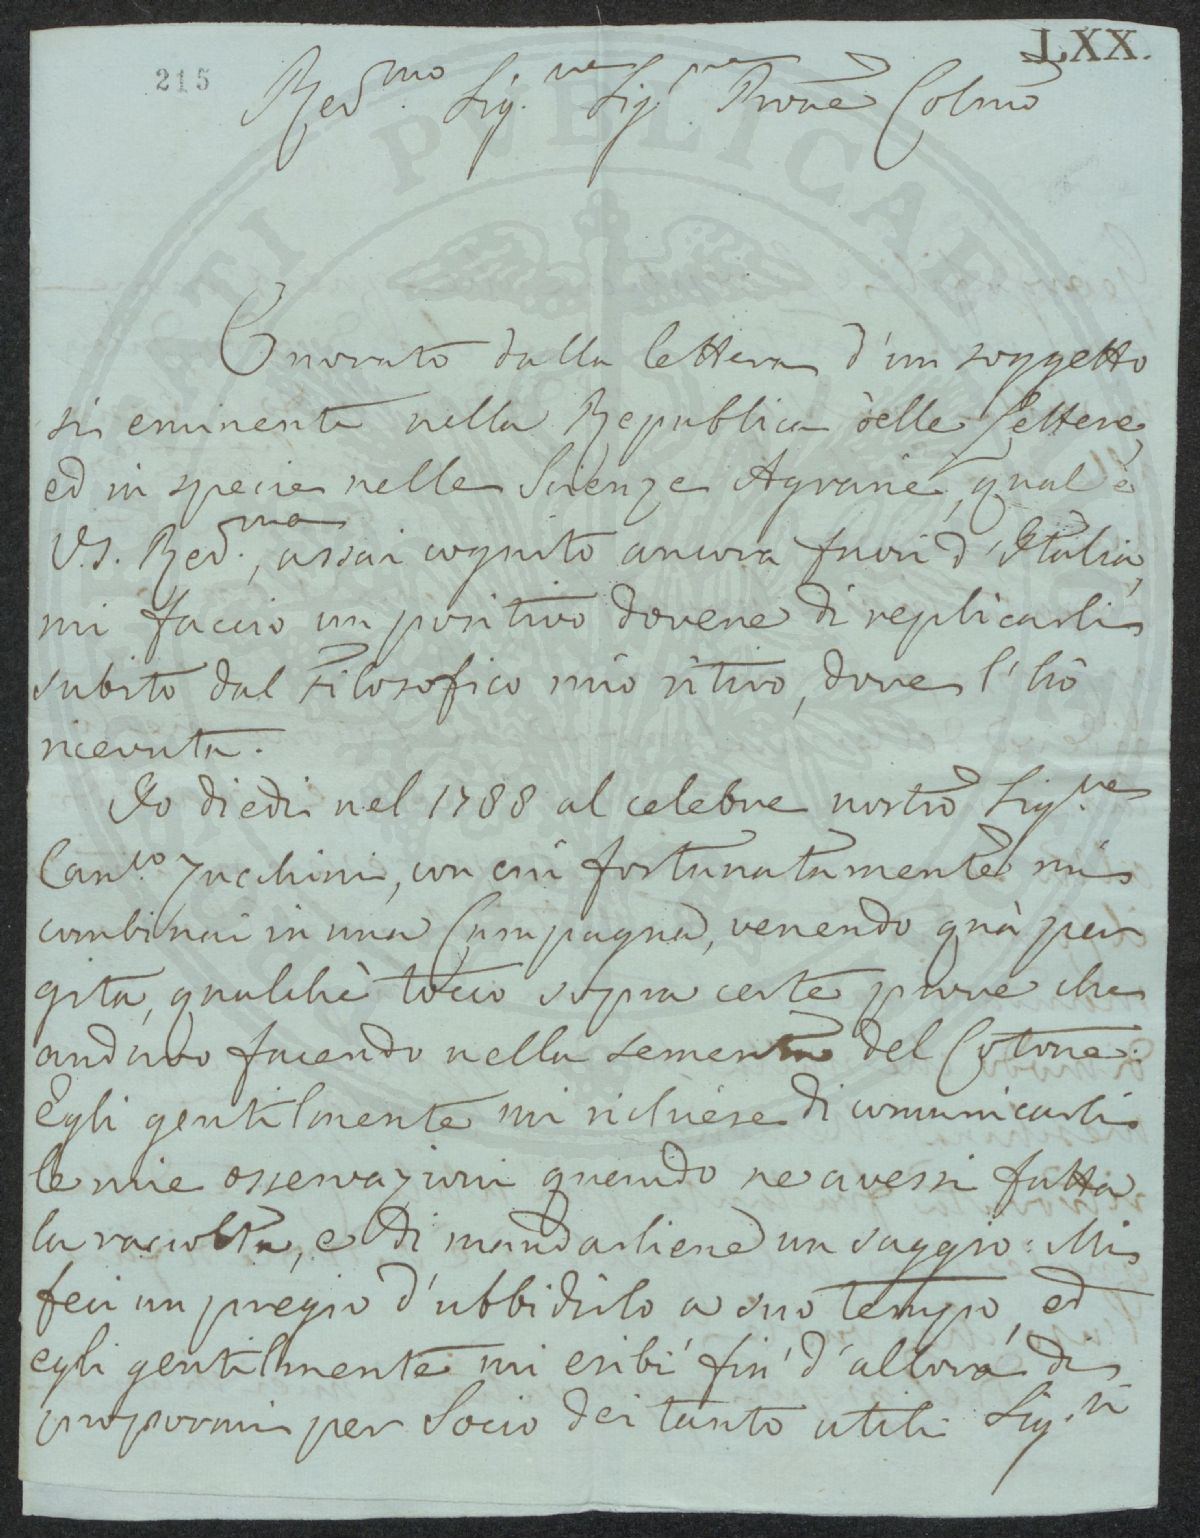 LXX.
215
Red.mo Sig.re Sig.re Prone Colmo
Onorato dalla lettera d'un soggetto
sì eminente nella Republica delle Lettere,
ed in specie nelle Scienze Agrarie, qual è
V.S. Red.ma, assai cognito ancora fuori d'Italia,
mi faccio un positivo dovere di replicarli
subito dal Filosofico mio ritiro, dove l'hò
ricevuta.
Io diedi nel 1788 al celebre nostro Sig.re
Can.co Zucchini, con cui fortunatamente mi
combinai in una Campagna, venendo quà per
gita, qualchè tocco sopra certe prove che
andavo facendo nella sementa del Cotone.
Egli gentilmente mi richiese di comunicarli
le mie osservazioni quando ne avessi fatta
la raccolta, e di mandarliene un saggio: Mi
feci un pregio d'ubbidirlo a suo tempo, ed
egli gentilmente mi esibì fin d'allora di
propormi per Socio dei tanto utili Sig.ri